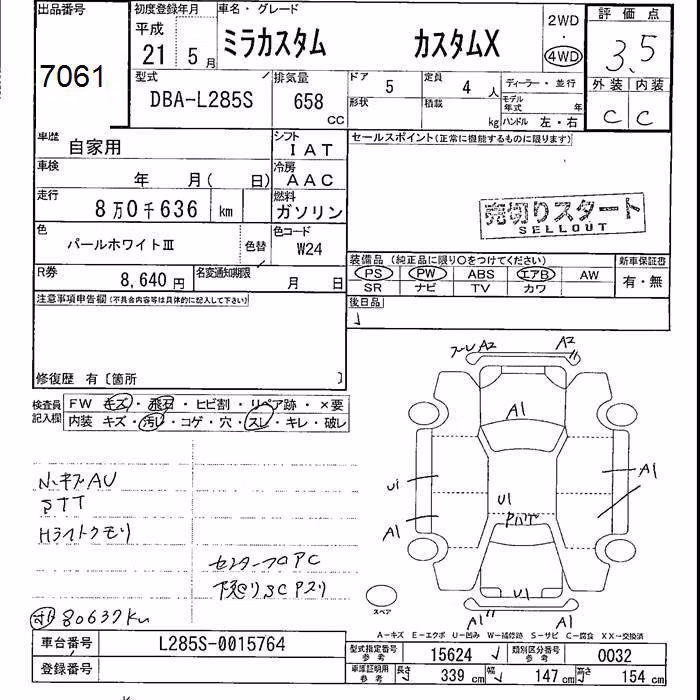 出品番号 初度登録年月 車名・グレード 2WD 評価点
7061 平成 21 5月 ミラカスタム カスタムX ・ 3.5
4WD
型式 排気量 ドア 5 定員 4人 ディーラー・並行 外装 内装
DBA-L285S 658 CC 形状 積載 kg モデル年式 年 C C
ハンドル 左・右
車歴 自家用 シフト IAT セールスポイント(正常に機能するものに限ります)
車検 年 月( 日) 冷房 AAC
走行 8万0千636 km 燃料 ガソリン 売切りスタート
SELLOUT
色 パールホワイトⅢ 色替 色コード W24
装備品(純正品に限り○をつけてください) 新車保証書
R券 8,640円 名変通知期限 月 日 PS PW ABS エアB AW 有・無
SR ナビ TV カワ
注意事項申告欄(不具合内容等は具体的に記入して下さい) 後日品
修復歴 有〔箇所 〕
検査員記入欄 FW キズ・飛石・ヒビ割・リペア跡・×要
内装 キズ・汚レ・コゲ・穴・スレ・キレ・破レ
A2 A2
A1
U1 U1 A1
A1
小キズAU
STT
Hライトクモリ
センターフロアC
下廻りSCアリ
80637km
U1
スペア
A1 A1
A-キズ E-エクボ U-凹み W-補修跡 S-サビ C-腐食 XX-交換済
車台番号 L285S-0015764 型式指定番号 参考 15624 類別区分番号 参考 0032
登録番号 車庫証明用 参考 長さ 339cm 幅 147cm 高さ 154cm